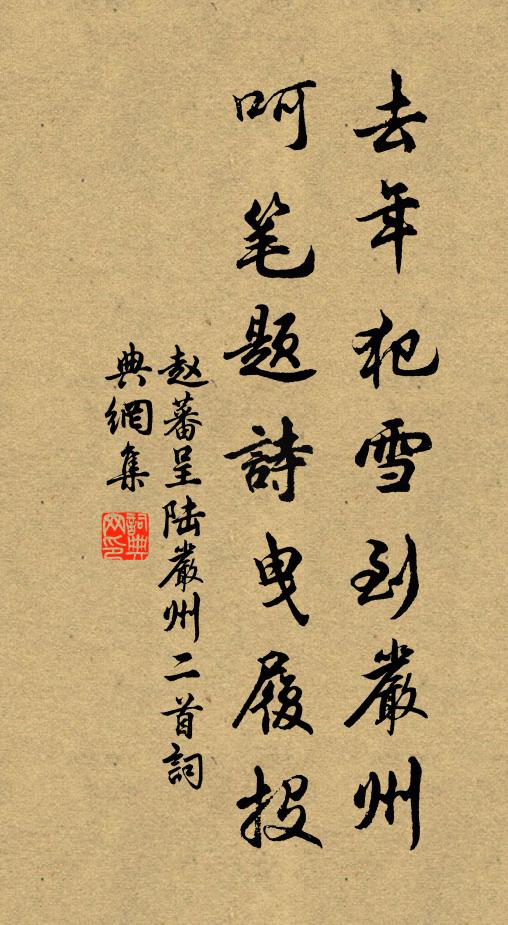 去年犯雪到嚴州
呵笔題詩曳履投
赵蕃呈陆嚴州二首詞
典網集
詞典
网印